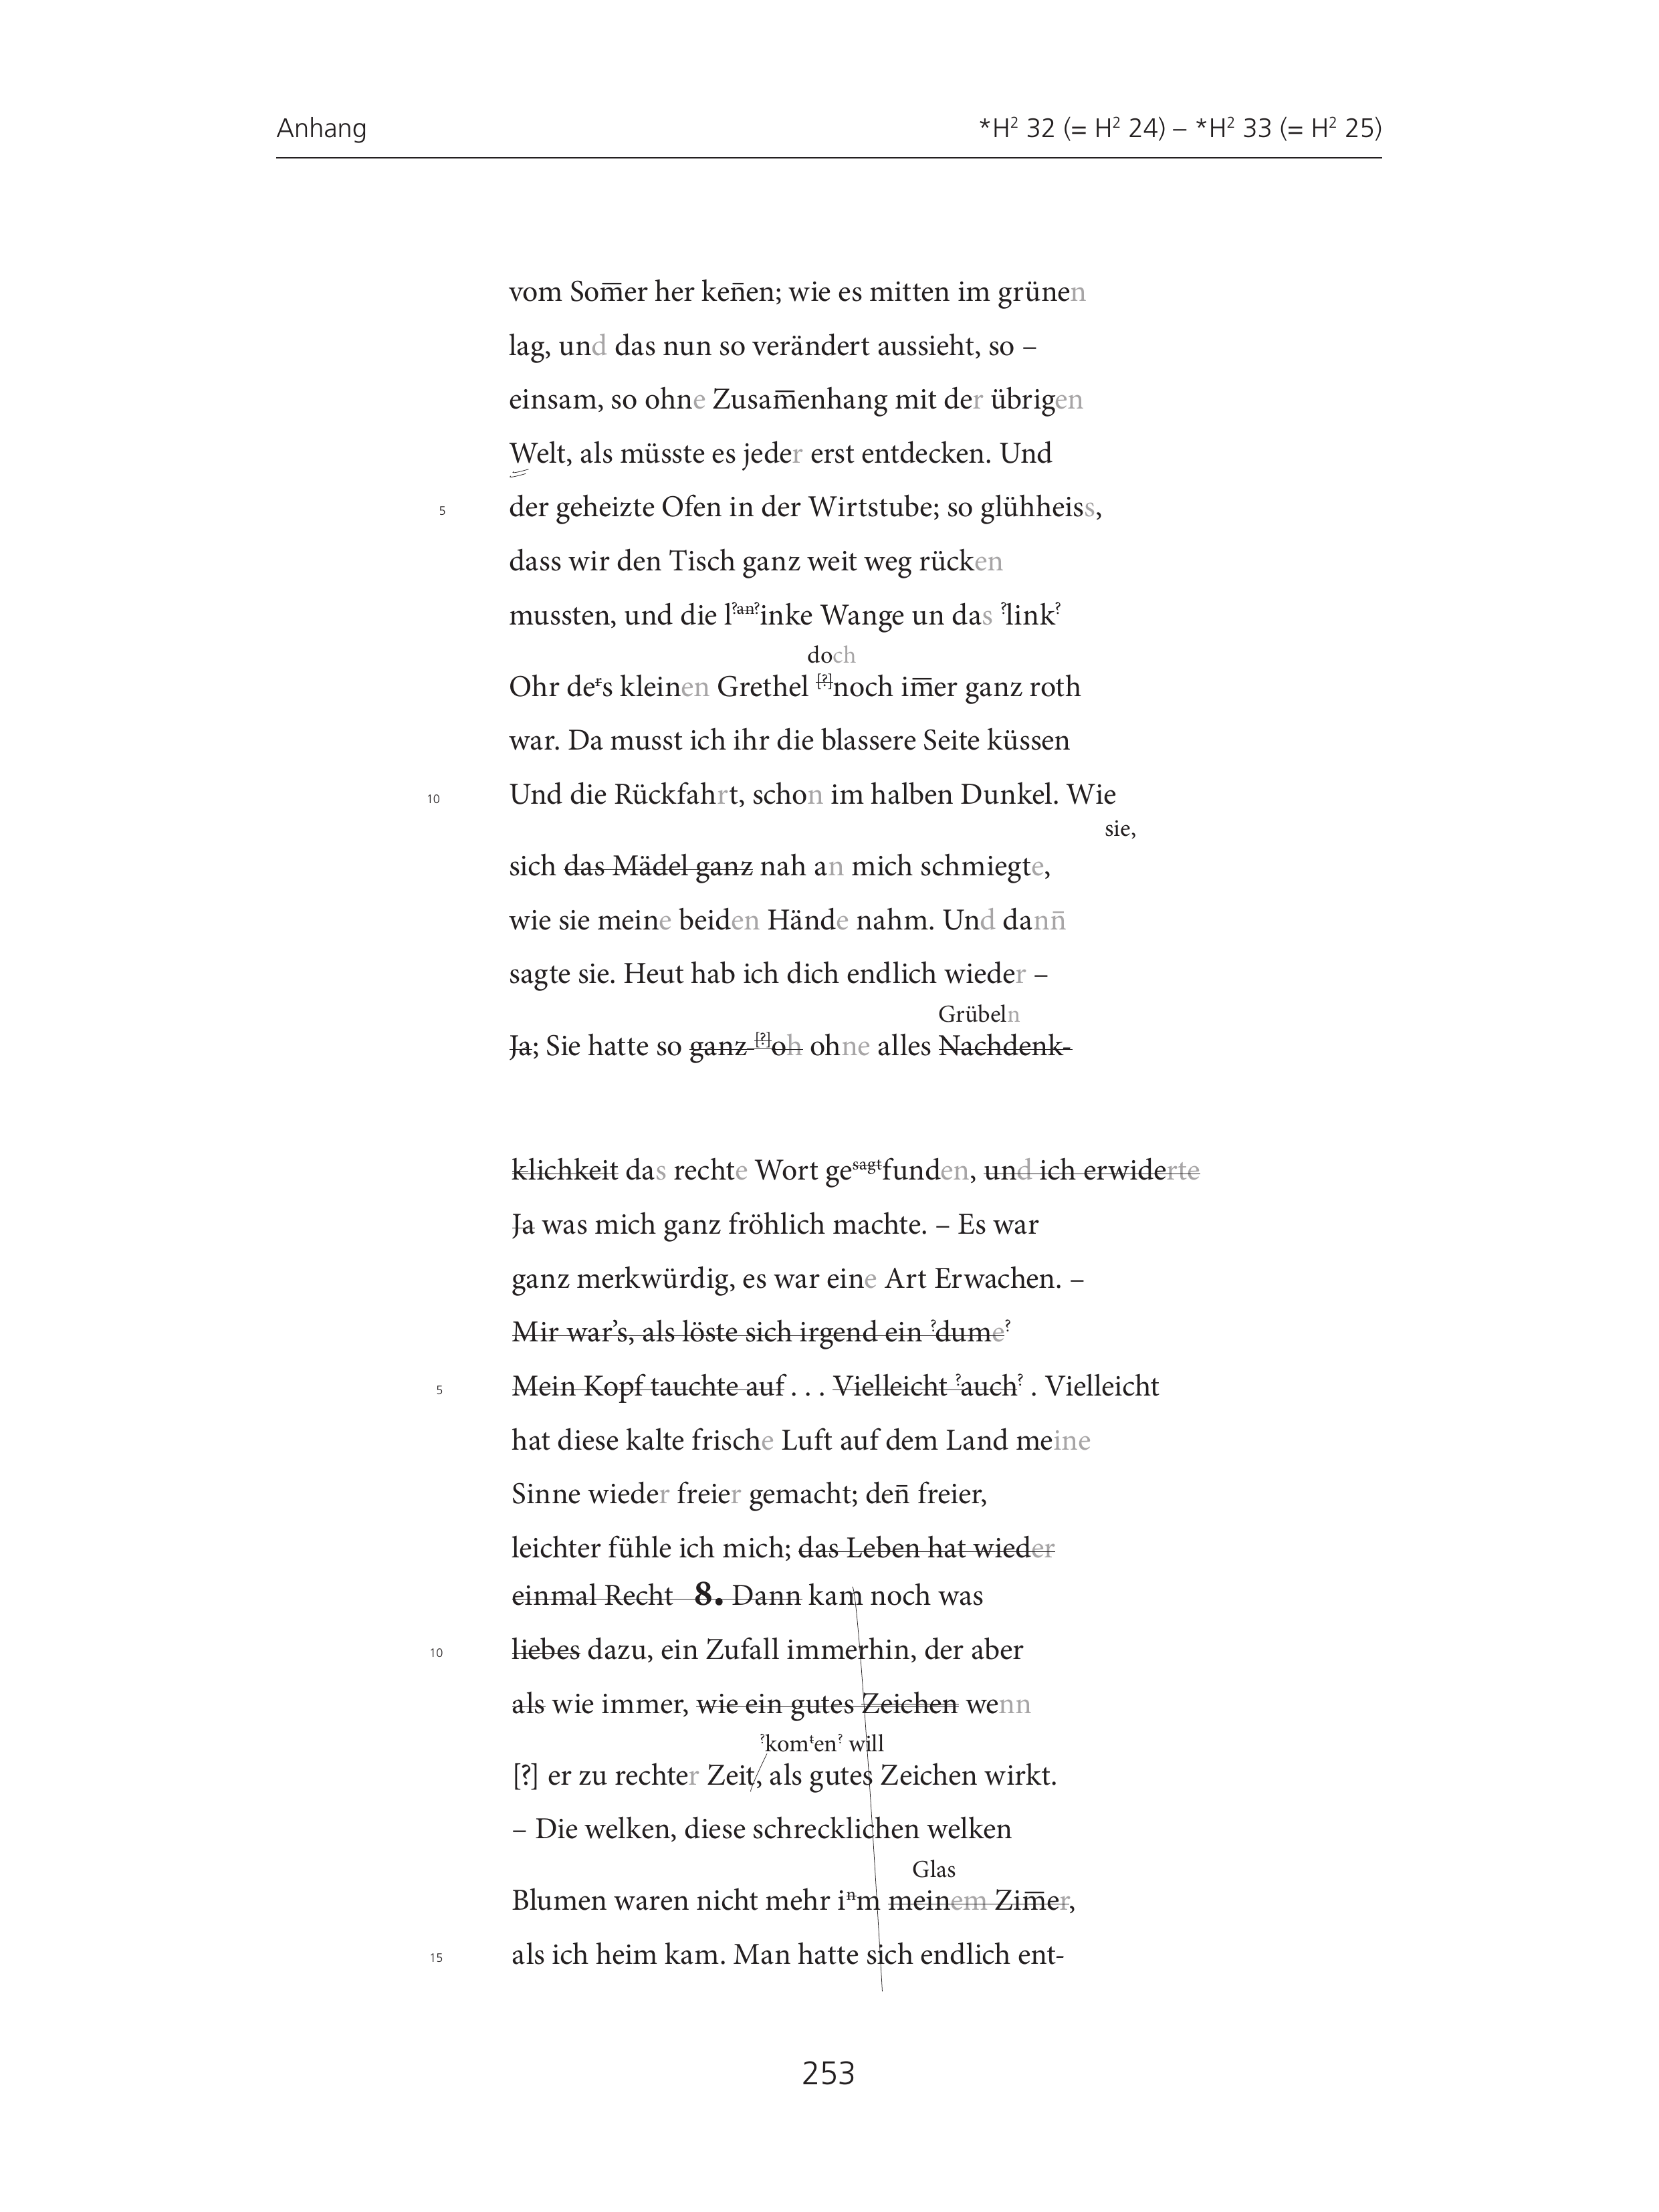 Anhang
*H² 32 (= H² 24) – *H² 33 (= H² 25)
vom Som̅er her ken̅en; wie es mitten im grünen
lag, und das nun so verändert aussieht, so –
einsam, so ohne Zusam̅enhang mit der übrigen
Welt, als müsste es jeder erst entdecken. Und
5 der geheizte Ofen in der Wirtstube; so glühheiss,
dass wir den Tisch ganz weit weg rücken
mussten, und die l?an?inke Wange un das ?link?
doch
Ohr ders kleinen Grethel [?]noch im̅er ganz roth
war. Da musst ich ihr die blassere Seite küssen
10 Und die Rückfahrt, schon im halben Dunkel. Wie
sie,
sich das Mädel ganz nah an mich schmiegte,
wie sie meine beiden Hände nahm. Und dann̅
sagte sie. Heut hab ich dich endlich wieder –
Grübeln
Ja; Sie hatte so ganz [?]oh ohne alles Nachdenk-
klichkeit das rechte Wort gesagtfunden, und ich erwiderte
Ja was mich ganz fröhlich machte. – Es war
ganz merkwürdig, es war eine Art Erwachen. –
Mir war’s, als löste sich irgend ein ?dume?
5 Mein Kopf tauchte auf . . . Vielleicht ?auch? . Vielleicht
hat diese kalte frische Luft auf dem Land meine
Sinne wieder freier gemacht; den̅ freier,
leichter fühle ich mich; das Leben hat wieder
einmal Recht 8. Dann kam noch was
10 liebes dazu, ein Zufall immerhin, der aber
als wie immer, wie ein gutes Zeichen wenn
?komten? will
[?] er zu rechter Zeit, als gutes Zeichen wirkt.
– Die welken, diese schrecklichen welken
Glas
Blumen waren nicht mehr inm meinem Zim̅er,
15 als ich heim kam. Man hatte sich endlich ent-
253